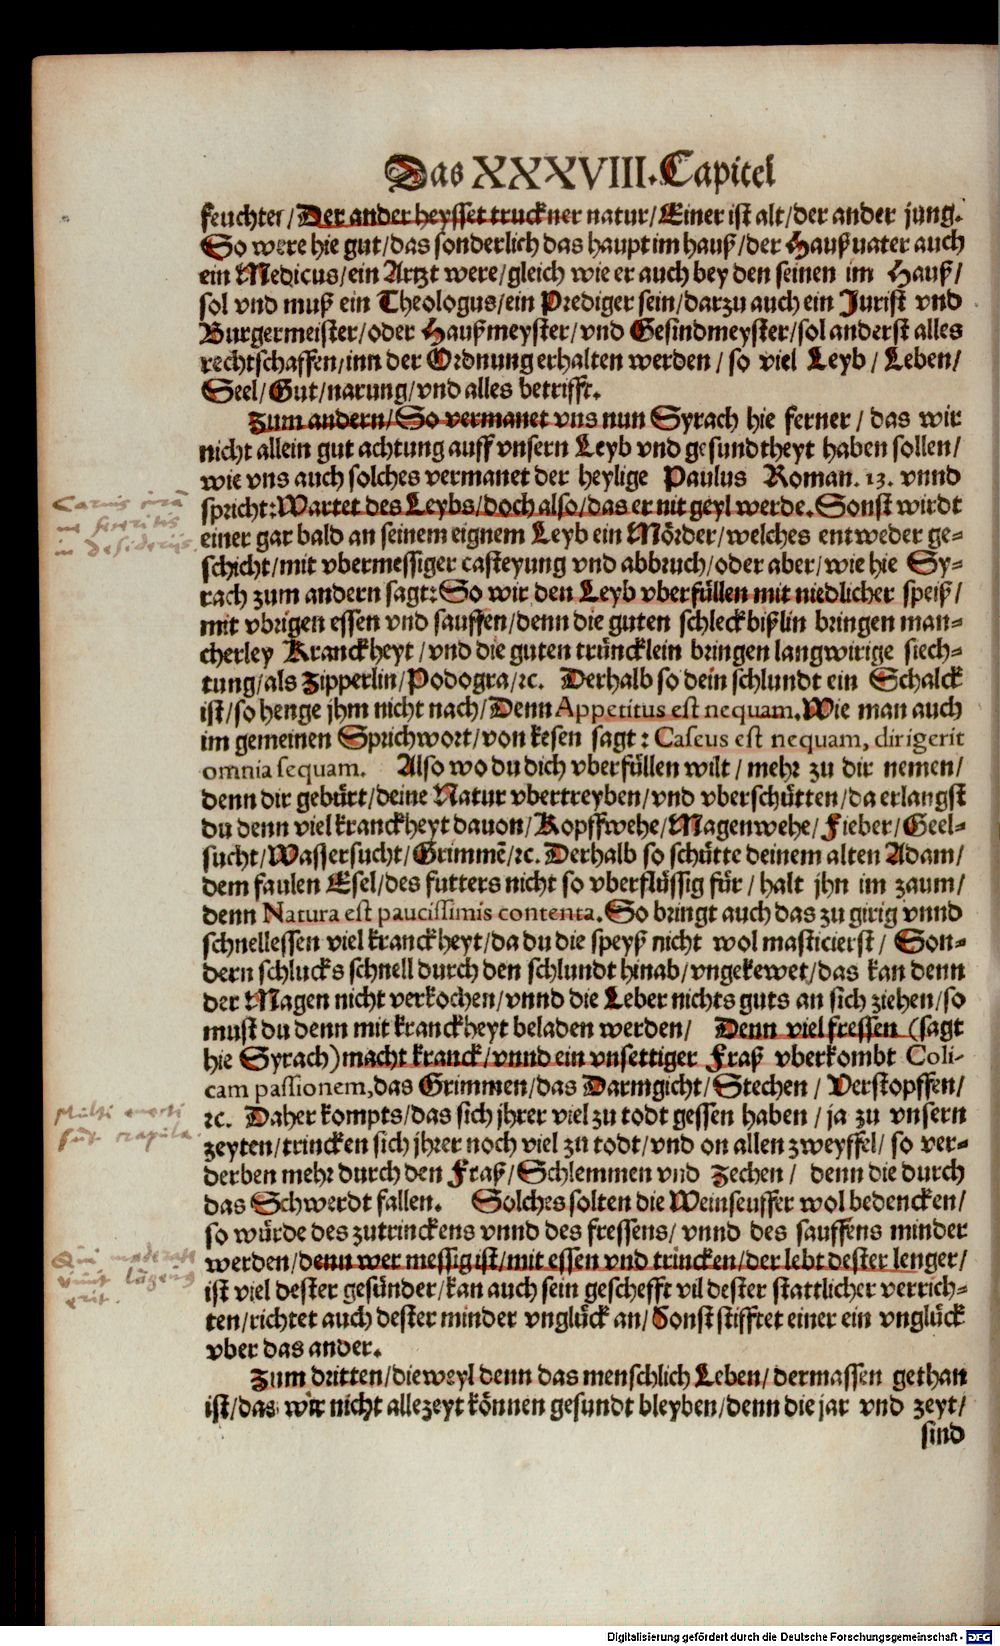 Das XXXVIII. Capitel
feuchter/Der ander heysset truckner natur/Einer ist alt/der ander jung.
So were hie gut/das sonderlich das haupt im hauß/der Haußuater auch
ein Medicus/ein Artzt were/gleich wie er auch bey den seinen im Hauß/
sol vnd muß ein Theologus/ein Prediger sein/darzu auch ein Jurist vnd
Burgermeister/oder Haußmeyster/vnd Gesindmeyster/sol anderst alles
rechtschaffen/inn der Ordnung erhalten werden/ so viel Leyb/ Leben/
Seel/ Gut/narung/vnd alles betrifft.
Zum andern/So vermanet vns nun Syrach hie ferner/ das wir
nicht allein gut achtung auff vnsern Leyb vnd gesundtheyt haben sollen/
wie vns auch solches vermanet der heylige Paulus Roman. 13. vnnd
spricht:Wartet des Leybs/doch also/das er nit geyl werde. Sonst wirdt
einer gar bald an seinem eignem Leyb ein Mörder/welches entweder ge=
schicht/mit vbermessiger casteyung vnd abbruch/oder aber/wie hie Sy=
rach zum andern sagt:So wir den Leyb vberfüllen mit niedlicher speiß/
mit vbrigen essen vnd sauffen/denn die guten schleckbißlin bringen man=
cherley Kranckheyt/vnd die guten trüncklein bringen langwirige siech=
tung/als Zipperlin/Podogra/ꝛc. Derhalb so dein schlundt ein Schalck
ist/so henge jhm nicht nach/Denn Appetitus est nequam.Wie man auch
im gemeinen Sprichwort/von kesen sagt: Caseus est nequam, dirigerit
omnia sequam. Also wo du dich vberfüllen wilt/ mehr zu dir nemen/
denn dir gebürt/deine Natur vbertreyben/vnd vberschütten/da erlangst
du denn viel kranckheyt dauon/Kopffwehe/Magenwehe/Fieber/Geel=
sucht/Wassersucht/Grimmẽ/ꝛc. Derhalb so schütte deinem alten Adam/
dem faulen Esel/des futters nicht so vberflüssig für/ halt jhn im zaum/
denn Natura est paucissimis contenta.So bringt auch das zu girig vnnd
schnellessen viel kranckheyt/da du die speyß nicht wol masticierst/ Son=
dern schlucks schnell durch den schlundt hinab/vngekewet/das kan denn
der Magen nicht verkochen/vnnd die Leber nichts guts an sich ziehen/so
must du denn mit kranckheyt beladen werden/ Denn viel fressen (sagt
hie Syrach)macht kranck/vnnd ein vnsettiger Fraß vberkombt Coli-
cam passionem,das Grimmen/das Darmgicht/Stechen/ Verstopffen/
ꝛc. Daher kompts/das sich jhrer viel zu todt gessen haben/ ja zu vnsern
zeyten/trincken sich jhrer noch viel zu todt/vnd on allen zweyffel/ so ver=
derben mehr durch den Fraß/Schlemmen vnd Zechen/ denn die durch
das Schwerdt fallen. Solches solten die Weinseuffer wol bedencken/
so würde des zutrinckens vnnd des fressens/ vnnd des sauffens minder
werden/denn wer messig ist/mit essen vnd trincken/der lebt dester lenger/
ist viel dester gesünder/kan auch sein geschefft vil dester stattlicher verrich=
ten/richtet auch dester minder vnglück an/Sonst stifftet einer ein vnglück
vber das ander.
Zum dritten/dieweyl denn das menschlich Leben/dermassen gethan
ist/das wir nicht allezeyt können gesundt bleyben/denn die jar vnd zeyt/
sind
Carnis curã
ne feceritis
in desiderijs.
Multi mortui
sũt crapula.
Qui moderate
viuit lãgeuus
erit.
Digitalisierung gefördert durch die Deutsche Forschungsgemeinschaft - DFG